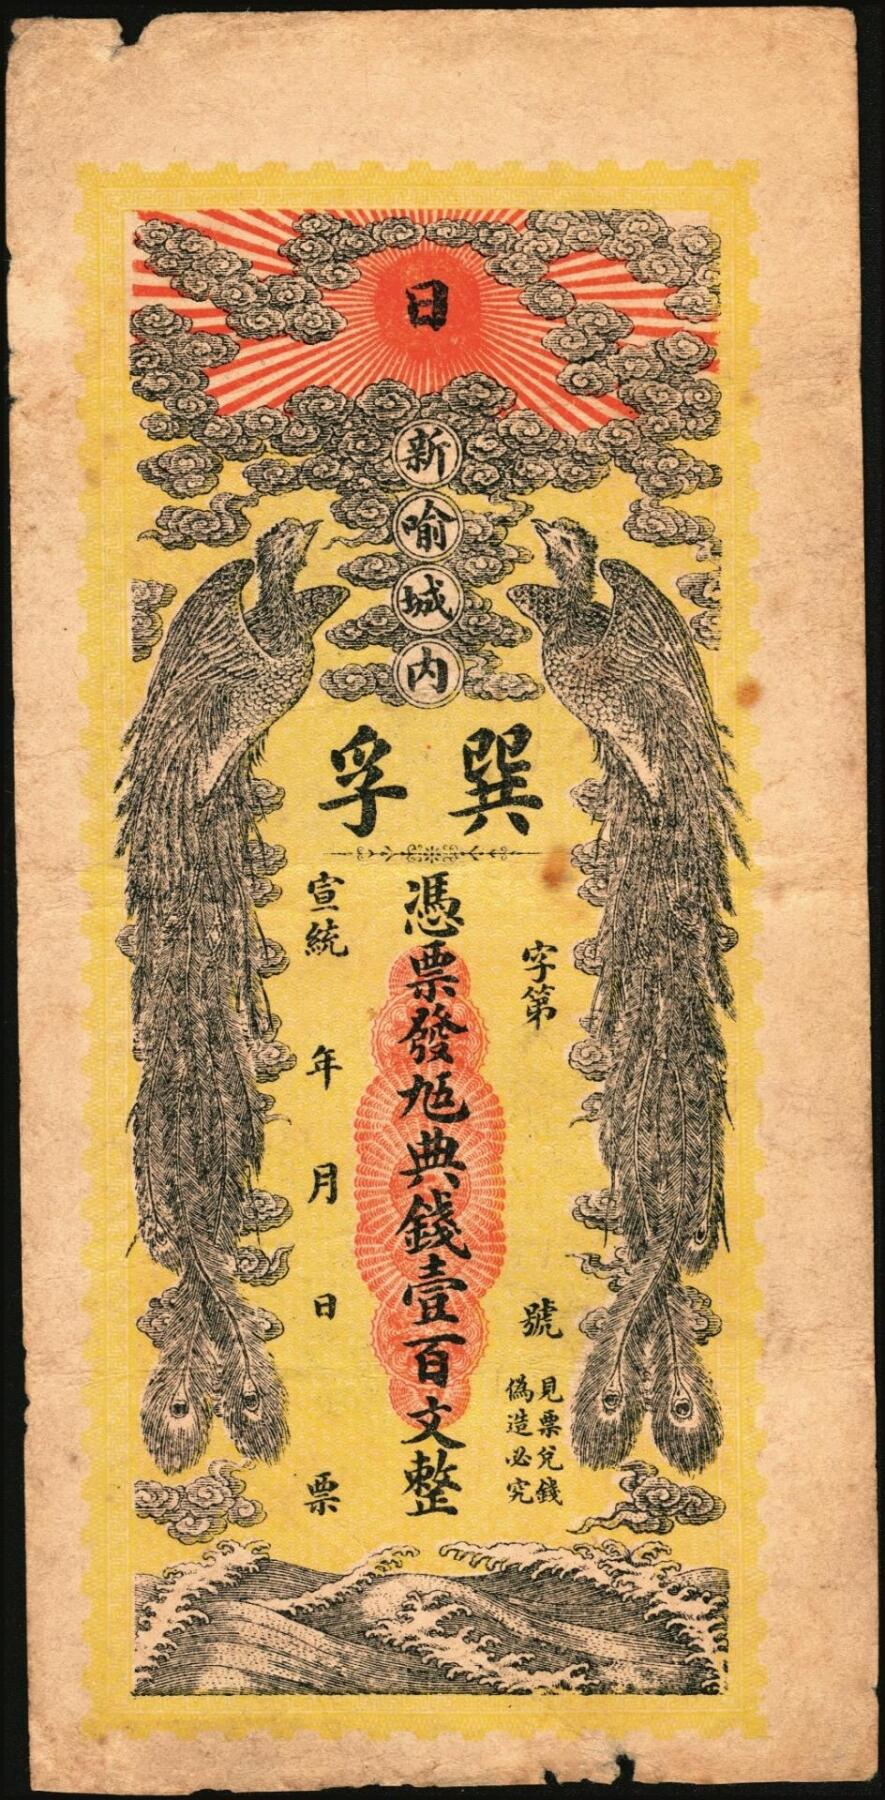 日
新喻城内
巽孚
字第 號
見票兌錢
偽造必究
憑票發九五典錢壹百文整
宣統 年 月 日 票